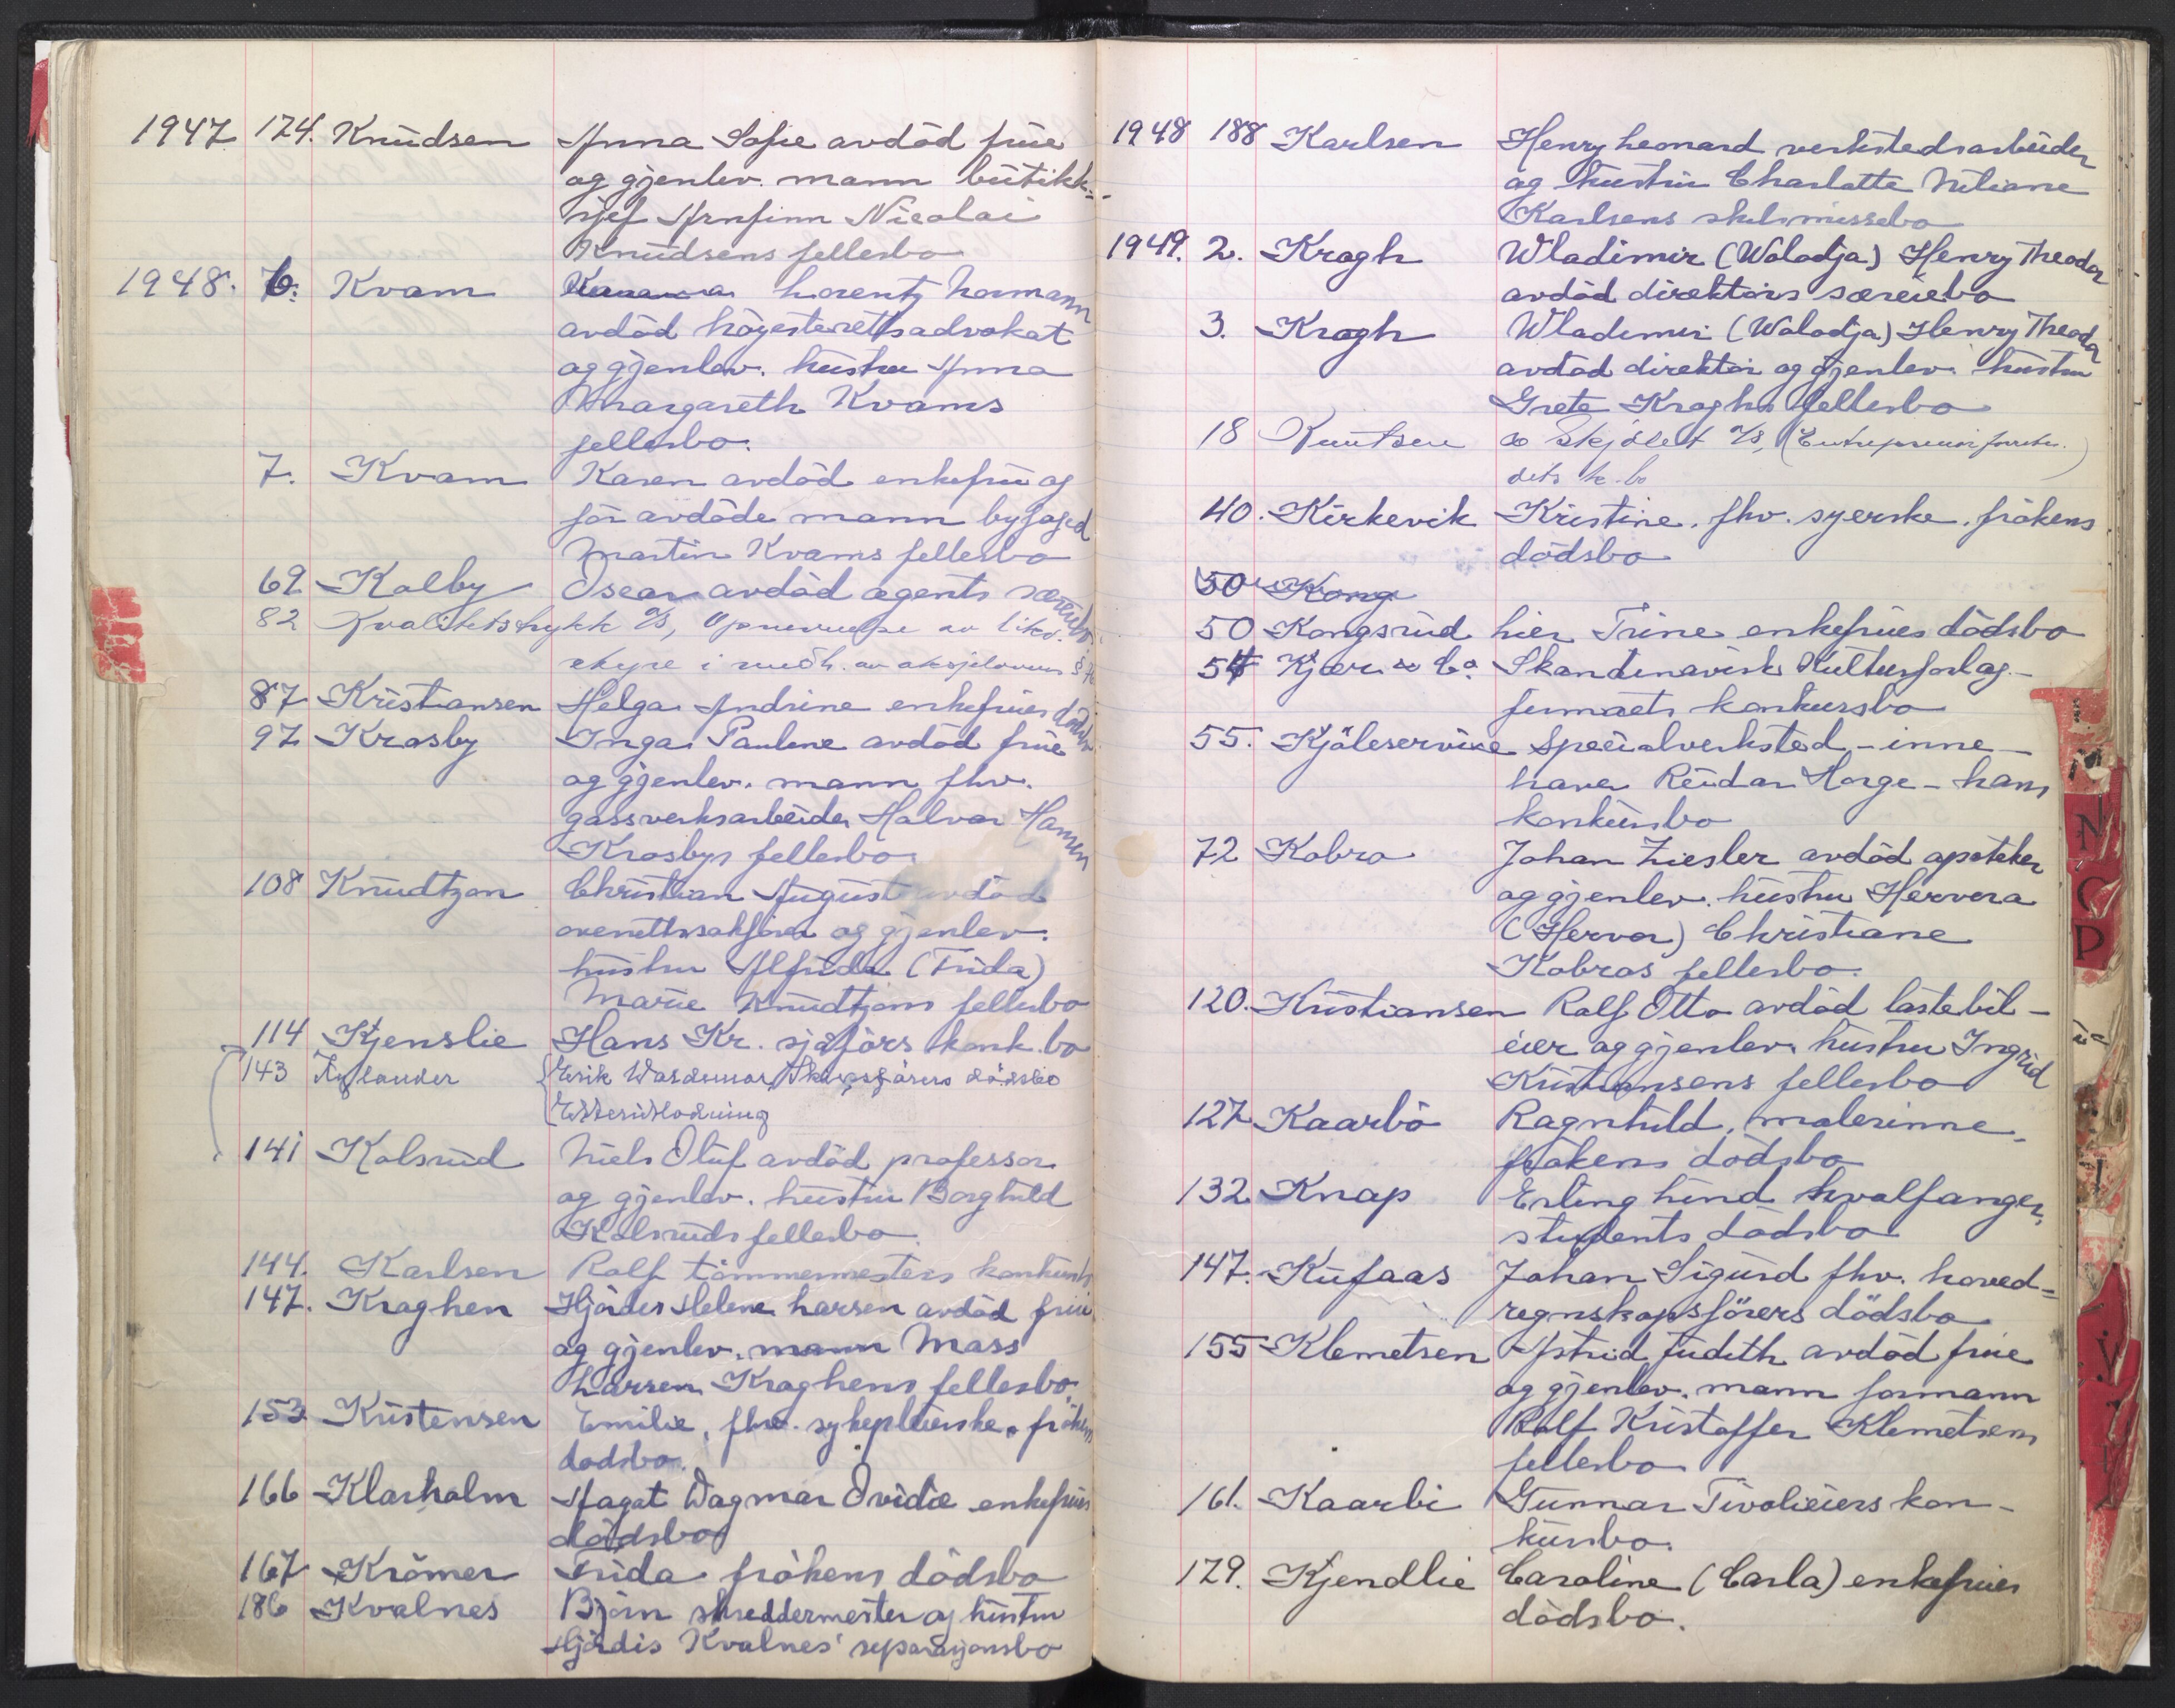 1947 174. Knudsen Anna Sofie avdöd frue
og gjenlev. mann butikk-
sjef Arnfinn Nicolai
Knudsens fellesbo
1948. 6. Kvam Lorentz Normann
avdöd höyesterettsadvokat
og gjenlev. hustru Anna
Margareth Kvams
fellesbo.
7. Kvam Karen avdöd enkefru og
för avdöde mann byfoged
Martin Kvams fellesbo
69 Kolby Oscar avdöd agents særeiebo
82 Kvalitetstrykk A/S, Opnevnelse av likv.
styre i medh. av aksjeloven §
87 Kristiansen Helga Andrine enkefrues dödsbo
97 Krosby Inga Pauline avdöd frue
og gjenlev. mann fhv.
gassverksarbeider Halvor Hansen
Krosbys fellesbo
108 Knudtzon Christian August avdöd
overrettssakförer og gjenlev.
hustru Alfrida (Frida)
Marie Knudtzons fellesbo
114 Kjenslie Hans Kr. sjåförs konk.bo
143 Kylander Erik Waldemar Skipsförers dödsbo
Etterutlodning
141 Kolsrud Niels Oluf avdöd professor
og gjenlev. hustru Borghild
Kolsruds fellesbo.
144. Karlsen Rolf tömmermesters konkursbo
147. Kraghen Hjördis Helene Larsen avdöd frue
og gjenlev. mann Mass
Larsen Kraghens fellesbo.
153 Kristensen Emilie, fhv. sykepleierske, frökens
dödsbo.
166 Klarholm Agat Dagmar Ovidie enkefrues
dödsbo
167 Krömer Frida frökens dödsbo
186 Kvalnes Björn skreddermester og hustru
Hjördis Kvalnes' separasjonsbo
1948 188 Karlsen Henry Leonard verkstedsarbeider
og hustru Charlotte Juliane
Karlsens skilsmissebo
1949. 2. Kragh Wladimir (Walodja) Henry Theodor
avdöd direktörs særeiebo
3. Kragh Wladimir (Walodja) Henry Theodor
avdöd direktör og gjenlev. hustru
Grete Kraghs fellesbo
18 Knutsen & Skjölet A/S, (Entreprenörforretn.)
dets k.bo
40. Kirkevik Kristine. fhv. syerske, frökens
dödsbo
50 Kong
50 Kongsrud Lier Trine enkefrues dödsbo
54 Kjær & Co. Skandinavisk Kulturforlag -
firmaets konkursbo
55. Kjöleservice Specialverksted - inne-
haver Reidar Horge - hans
konkursbo
72 Kobro Johan Ziesler avdöd apoteker
og gjenlev. hustru Hervera
(Hervor) Christiane
Kobros fellesbo.
120. Kristiansen Rolf Otto avdöd lastebil-
eier og gjenlev. hustru Ingrid
Kristiansens fellesbo
127 Kaarbö Ragnhild, malerinne,
frökens dödsbo
132 Knap Erling Lind hvalfanger,
students dödsbo
147. Kufaas Johan Sigurd fhv. hoved-
regnskapsförers dödsbo
155 Klemetsen Astrid Judith avdöd frue
og gjenlev. mann formann
Rolf Kristoffer Klemetsens
fellesbo
161. Kaarbi Gunnar Tivolieiers kon-
kursbo.
179. Kjendlie Caroline (Carla) enkefrues
dödsbo.